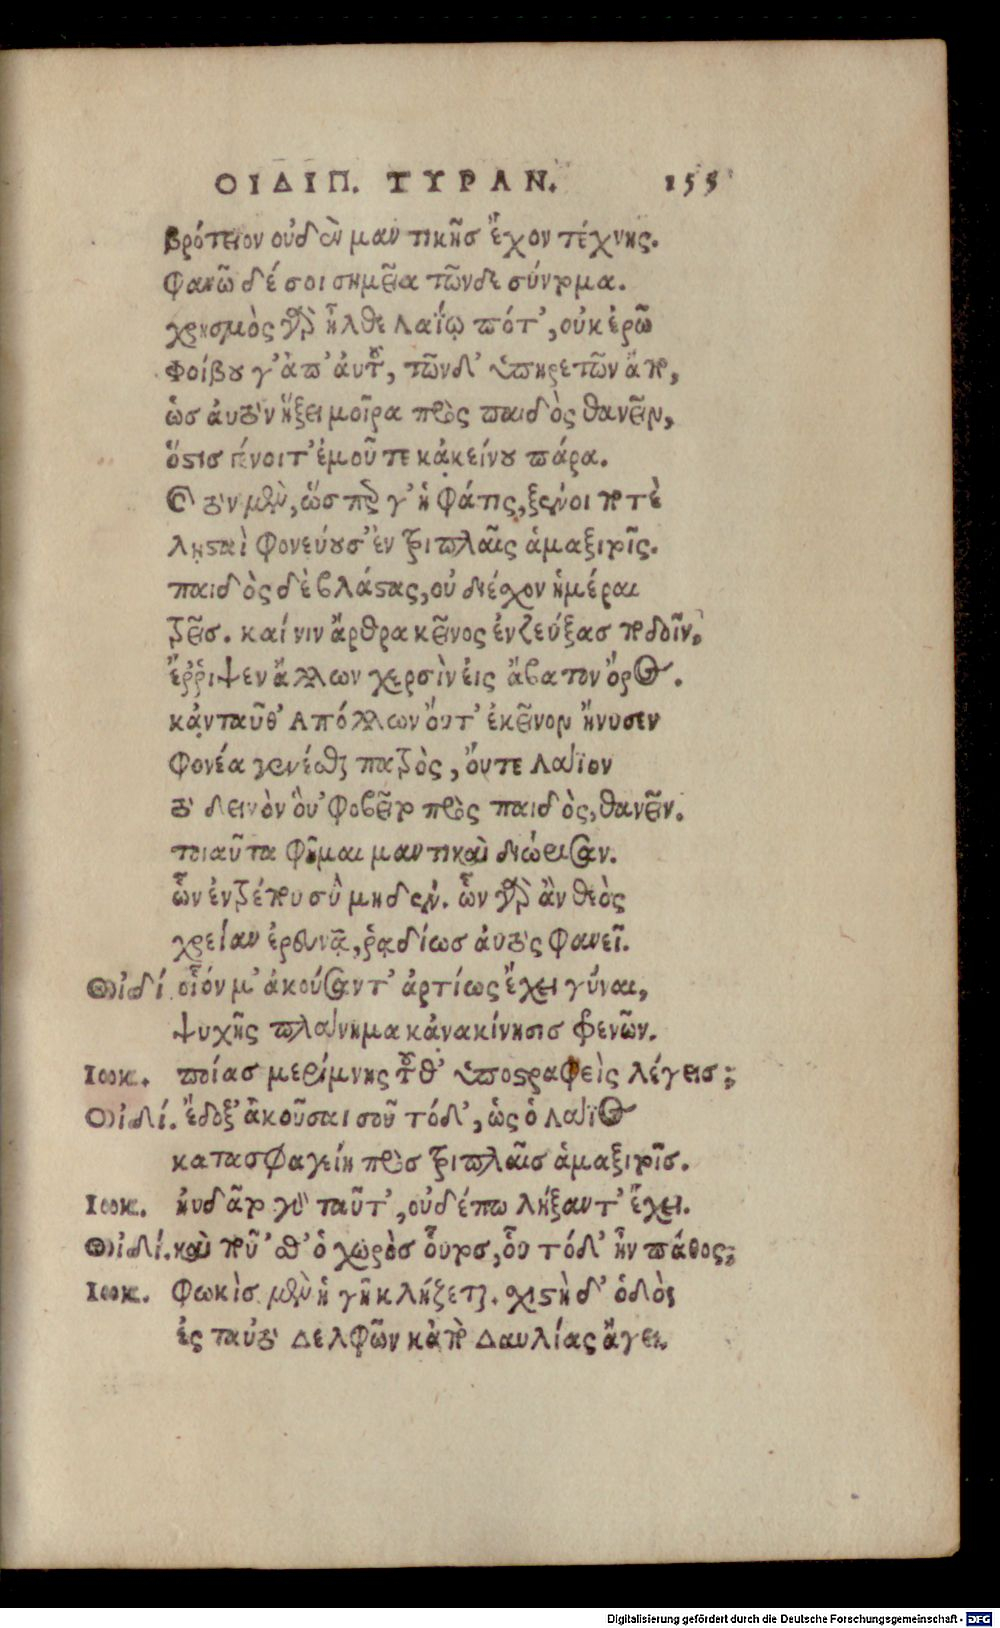 ΟΙΔΙΠ. ΤΥΡΑΝ. 155
βρότειον οὐδὲν μαντικῆς ἔχον τέχνης.
φανῶ δέ σοι σημεῖα τῶνδε σύντομα.
χρησμὸς γὰρ ἦλθε Λαΐῳ ποτ', οὐκ ἐρῶ
Φοίβου γ' ἀπ' αὐτοῦ, τῶνδ' ὑπηρετῶν ἄπο,
ὡς αὐτὸν ἥξει μοῖρα πρὸς παιδὸς θανεῖν,
ὅστις γένοιτ' ἐμοῦ τε κἀκείνου πάρα.
Καὶ τὸν μὲν, ὥσπερ γ' ἡ φάτις, ξένοι ποτὲ
λῃσταὶ φονεύουσ' ἐν τριπλαῖς ἁμαξιτοῖς.
παιδὸς δὲ βλάστας, οὐ διέσχον ἡμέραι
τρεῖς. καί νιν ἄρθρα κεῖνος ἐνζεύξας ποδοῖν,
ἔῤῥιψεν ἄλλων χερσὶν εἰς ἄβατον ὄρος.
κἀνταῦθ' Ἀπόλλων οὔτ' ἐκεῖνον ἤνυσεν
φονέα γενέσθαι πατρὸς, οὔτε Λάϊον
τὸ δεινὸν οὗ 'φοβεῖτο πρὸς παιδὸς, θανεῖν.
τοιαῦτα φῆμαι μαντικαὶ διώρισαν.
ὧν ἐντρέπου σὺ μηδέν. ὧν γὰρ ἂν θεὸς
χρείαν ἐρευνᾷ, ῥᾳδίως αὐτὸς φανεῖ.
Οἰδί. οἷόν μ' ἀκούσαντ' ἀρτίως ἔχει γύναι,
ψυχῆς πλάνημα κἀνακίνησις φρενῶν.
Ιοκ. ποίας μερίμνης τοῦθ' ὑποστραφεὶς λέγεις;
Οἰδί. ἔδοξ' ἀκοῦσαι σοῦ τόδ', ὡς ὁ Λάϊος
κατασφαγείη πρὸς τριπλαῖς ἁμαξιτοῖς.
Ιοκ. ηὐδᾶτο γὰρ ταῦτ', οὐδέπω λήξαντ' ἔχει.
Οἰδί. καὶ ποῦ 'σθ' ὁ χῶρος οὗτος, οὗ τόδ' ἦν πάθος;
Ιοκ. Φωκὶς μὲν ἡ γῆ κλῄζεται. σχιστὴ δ' ὁδὸς
ἐς ταὐτὸ Δελφῶν κἀπὸ Δαυλίας ἄγει.
Digitalisierung gefördert durch die Deutsche Forschungsgemeinschaft - DFG